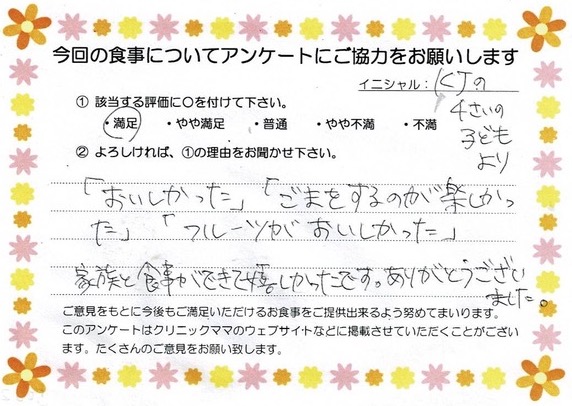 今回の食事についてアンケートにご協力をお願いします
イニシャル：KJの
4さいの
子ども
より
① 該当する評価に○を付けて下さい。
・満足 ・やや満足 ・普通 ・やや不満 ・不満
② よろしければ、①の理由をお聞かせ下さい。
「おいしかった」「ごまをするのが楽しかっ
た」「フルーツがおいしかった」
家族と食事ができて嬉しかったです。ありがとうござい
ました。
ご意見をもとに今後もご満足いただけるお食事をご提供出来るよう努めてまいります。
このアンケートはクリニックママのウェブサイトなどに掲載させていただくことがござい
ます。たくさんのご意見をお願い致します。